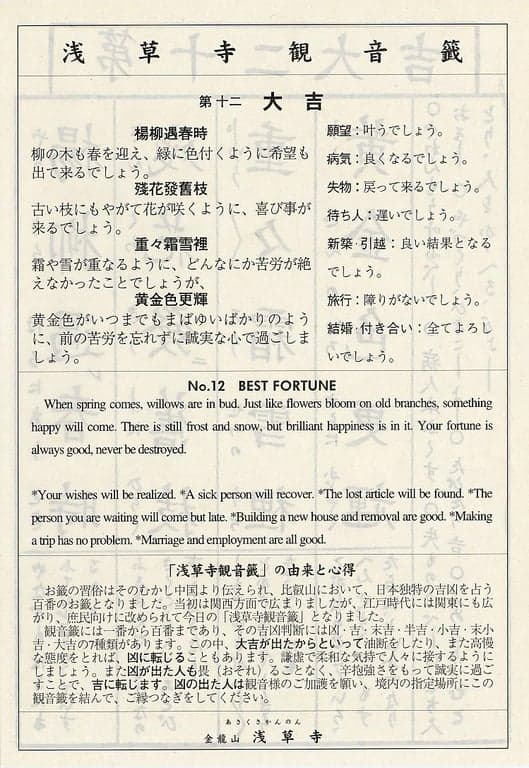 浅草寺観音籤
第十二 大吉
楊柳遇春時
柳の木も春を迎え、緑に色付くように希望も
出て来るでしょう。
殘花發舊枝
古い枝にもやがて花が咲くように、喜び事が
来るでしょう。
重々霜雪裡
霜や雪が重なるように、どんなにか苦労が絶
えなかったことでしょうが、
黄金色更輝
黄金色がいつまでもまばゆいばかりのよう
に、前の苦労を忘れずに誠実な心で過ごしま
しょう。
願望：叶うでしょう。
病気：良くなるでしょう。
失物：戻って来るでしょう。
待ち人：遅いでしょう。
新築・引越：良い結果となる
でしょう。
旅行：障りがないでしょう。
結婚・付き合い：全てよろし
いでしょう。
No.12 BEST FORTUNE
When spring comes, willows are in bud. Just like flowers bloom on old branches, something
happy will come. There is still frost and snow, but brilliant happiness is in it. Your fortune is
always good, never be destroyed.
*Your wishes will be realized. *A sick person will recover. *The lost article will be found. *The
person you are waiting will come but late. *Building a new house and removal are good. *Making
a trip has no problem. *Marriage and employment are all good.
「浅草寺観音籤」の由来と心得
お籤の習俗はそのむかし中国より伝えられ、比叡山において、日本独特の吉凶を占う
百番のお籤となりました。当初は関西方面で広まりましたが、江戸時代には関東にも広
がり、庶民向けに改められて今日の「浅草寺観音籤」となりました。
観音籤には一番から百番まであり、その吉凶判断には凶・吉・末吉・半吉・小吉・末小
吉・大吉の7種類があります。この中、大吉が出たからといって油断をしたり、また高慢
な態度をとれば、凶に転じることもあります。謙虚で柔和な気持で人々に接するようにし
ましょう。また凶が出た人も畏（おそれ）ることなく、辛抱強さをもって誠実に過ご
すことで、吉に転じます。凶の出た人は観音様のご加護を願い、境内の指定場所にこの
観音籤を結んで、ご縁つなぎをしてください。
あさくさかんのん
金龍山 浅草寺